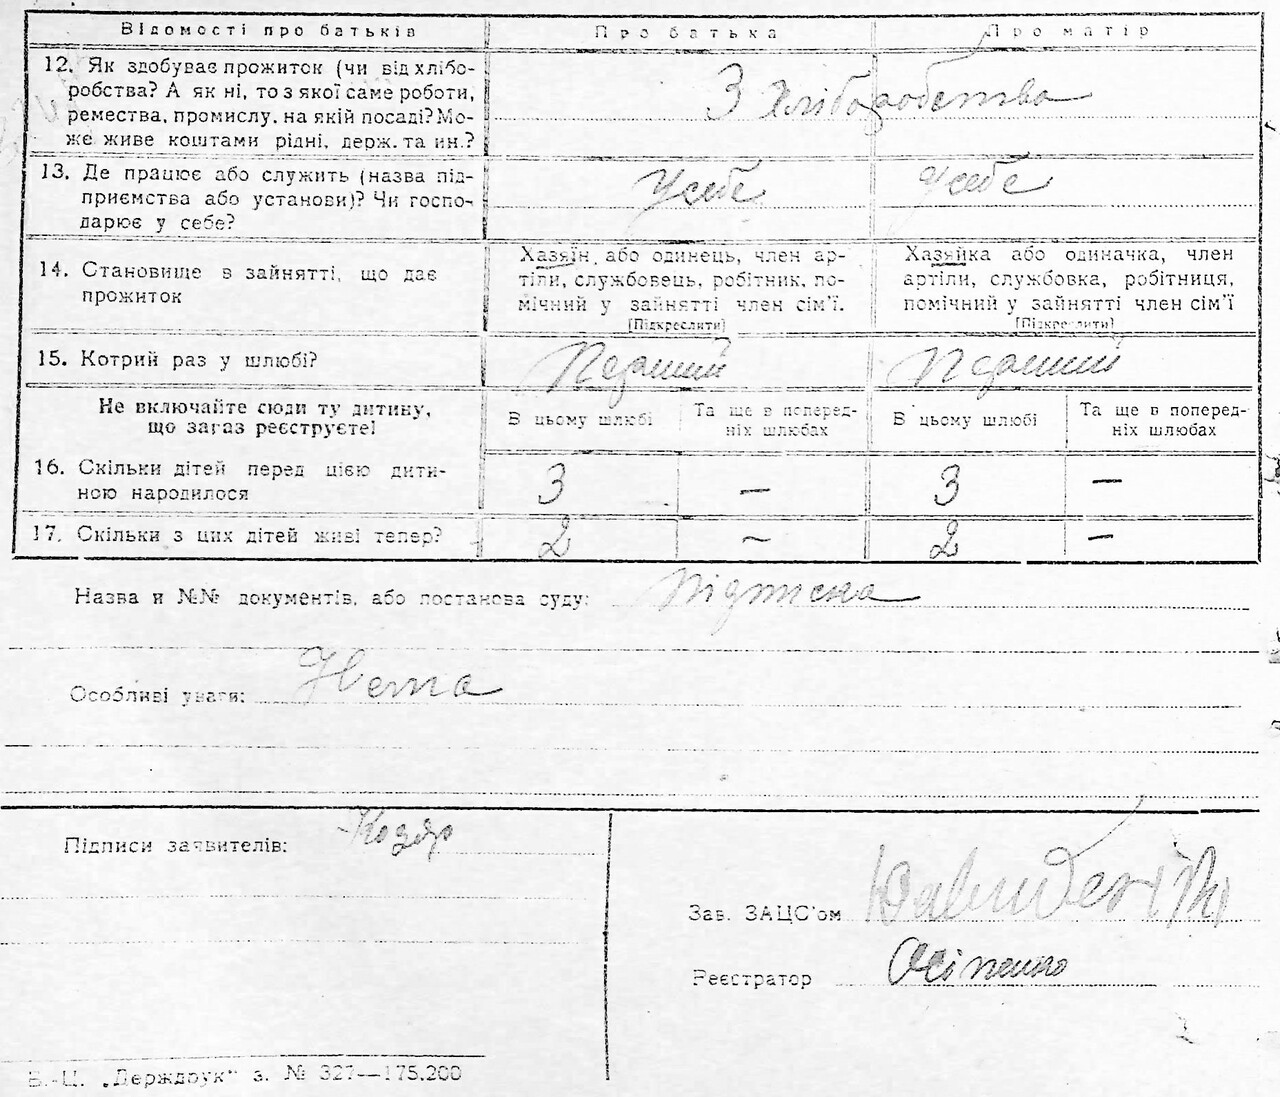 Відомості про батьків Про батька Про матір
12. Як здобуває прожиток (чи від хлібо-
робства? А як ні, то з якої саме роботи,
ремества, промислу, на якій посаді? Мо-
же живе коштами рідні, держ. та ин.?
З хліборобства
13. Де працює або служить (назва під-
приємства або установи)? Чи госпо-
дарює у себе?
У себе У себе
14. Становище в зайнятті, що дає
прожиток
Хазяїн, або одинець, член ар-
тіли, службовець, робітник, по-
мічний у зайнятті член сім'ї.
[Підкреслити]
Хазяйка або одиначка, член
артіли, службовка, робітниця,
помічний у зайнятті член сім'ї
[Підкреслити]
15. Котрий раз у шлюбі?
Не включайте сюди ту дитину,
що зараз реєструєте!
В цьому шлюбі
Та ще в поперед-
ніх шлюбах
В цьому шлюбі
Та ще в поперед-
ніх шлюбах
16. Скільки дітей перед цією дити-
ною народилося
3 — 3 —
17. Скільки з цих дітей живі тепер? 2 — 2 —
Назва и №№ документів, або постанова суду: Підписка
Особливі уваги: Нема
Підписи заявителів:
Зав. ЗАЦС'ом
Реєстратор Осіпенко
Б.-Ц. „Держдрук" з. № 327—175.200